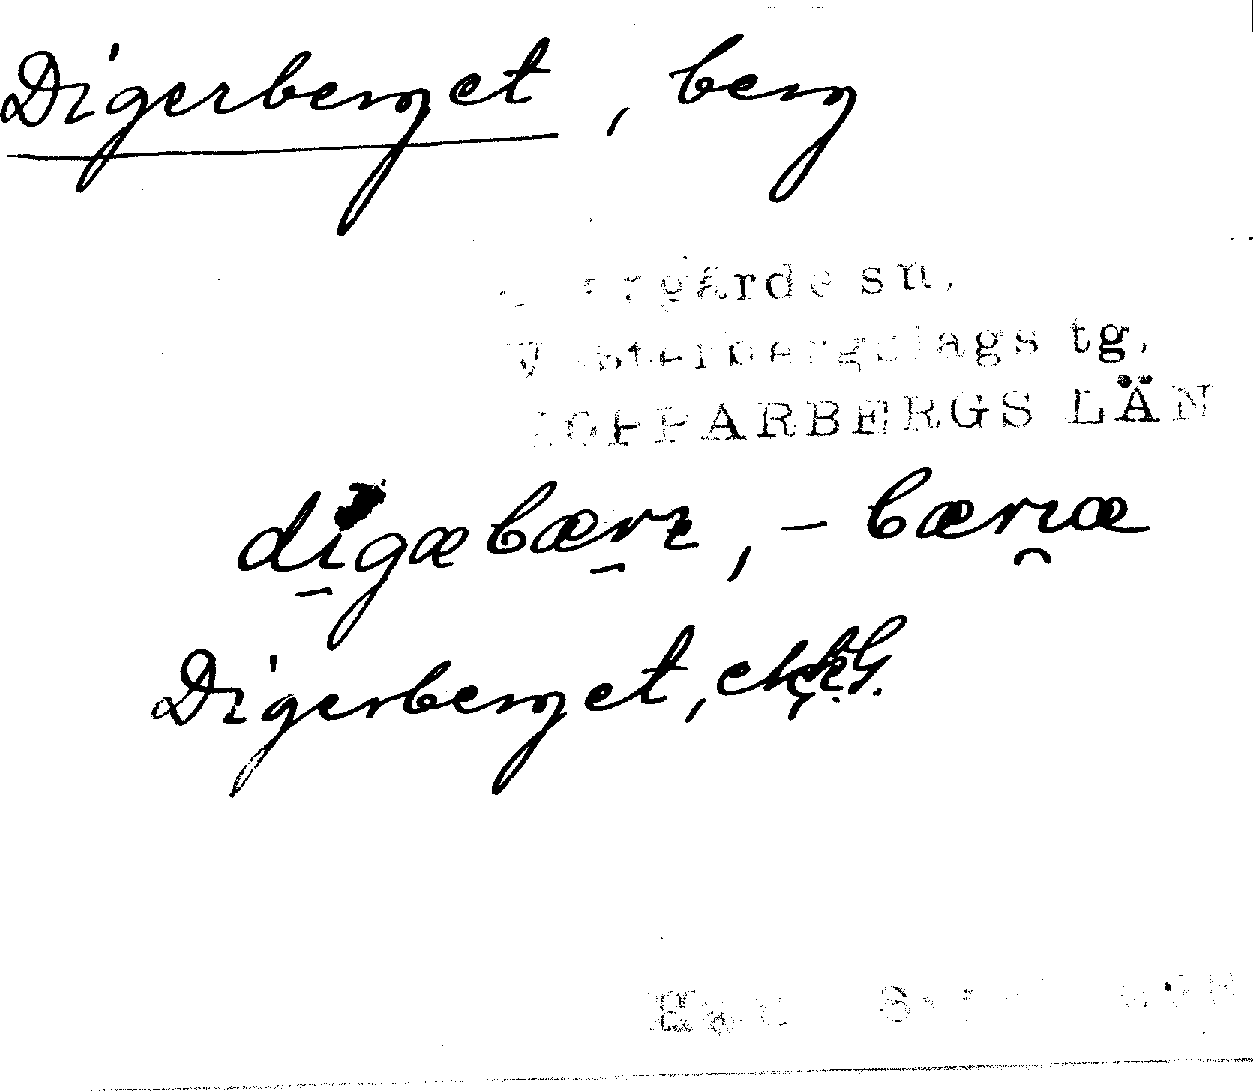 Digerberget, berg
sn,
Västerbergslags tg,
KOPPARBERGS LÄN
digæbærı, – bærıæ
Digerberget, ekk G.